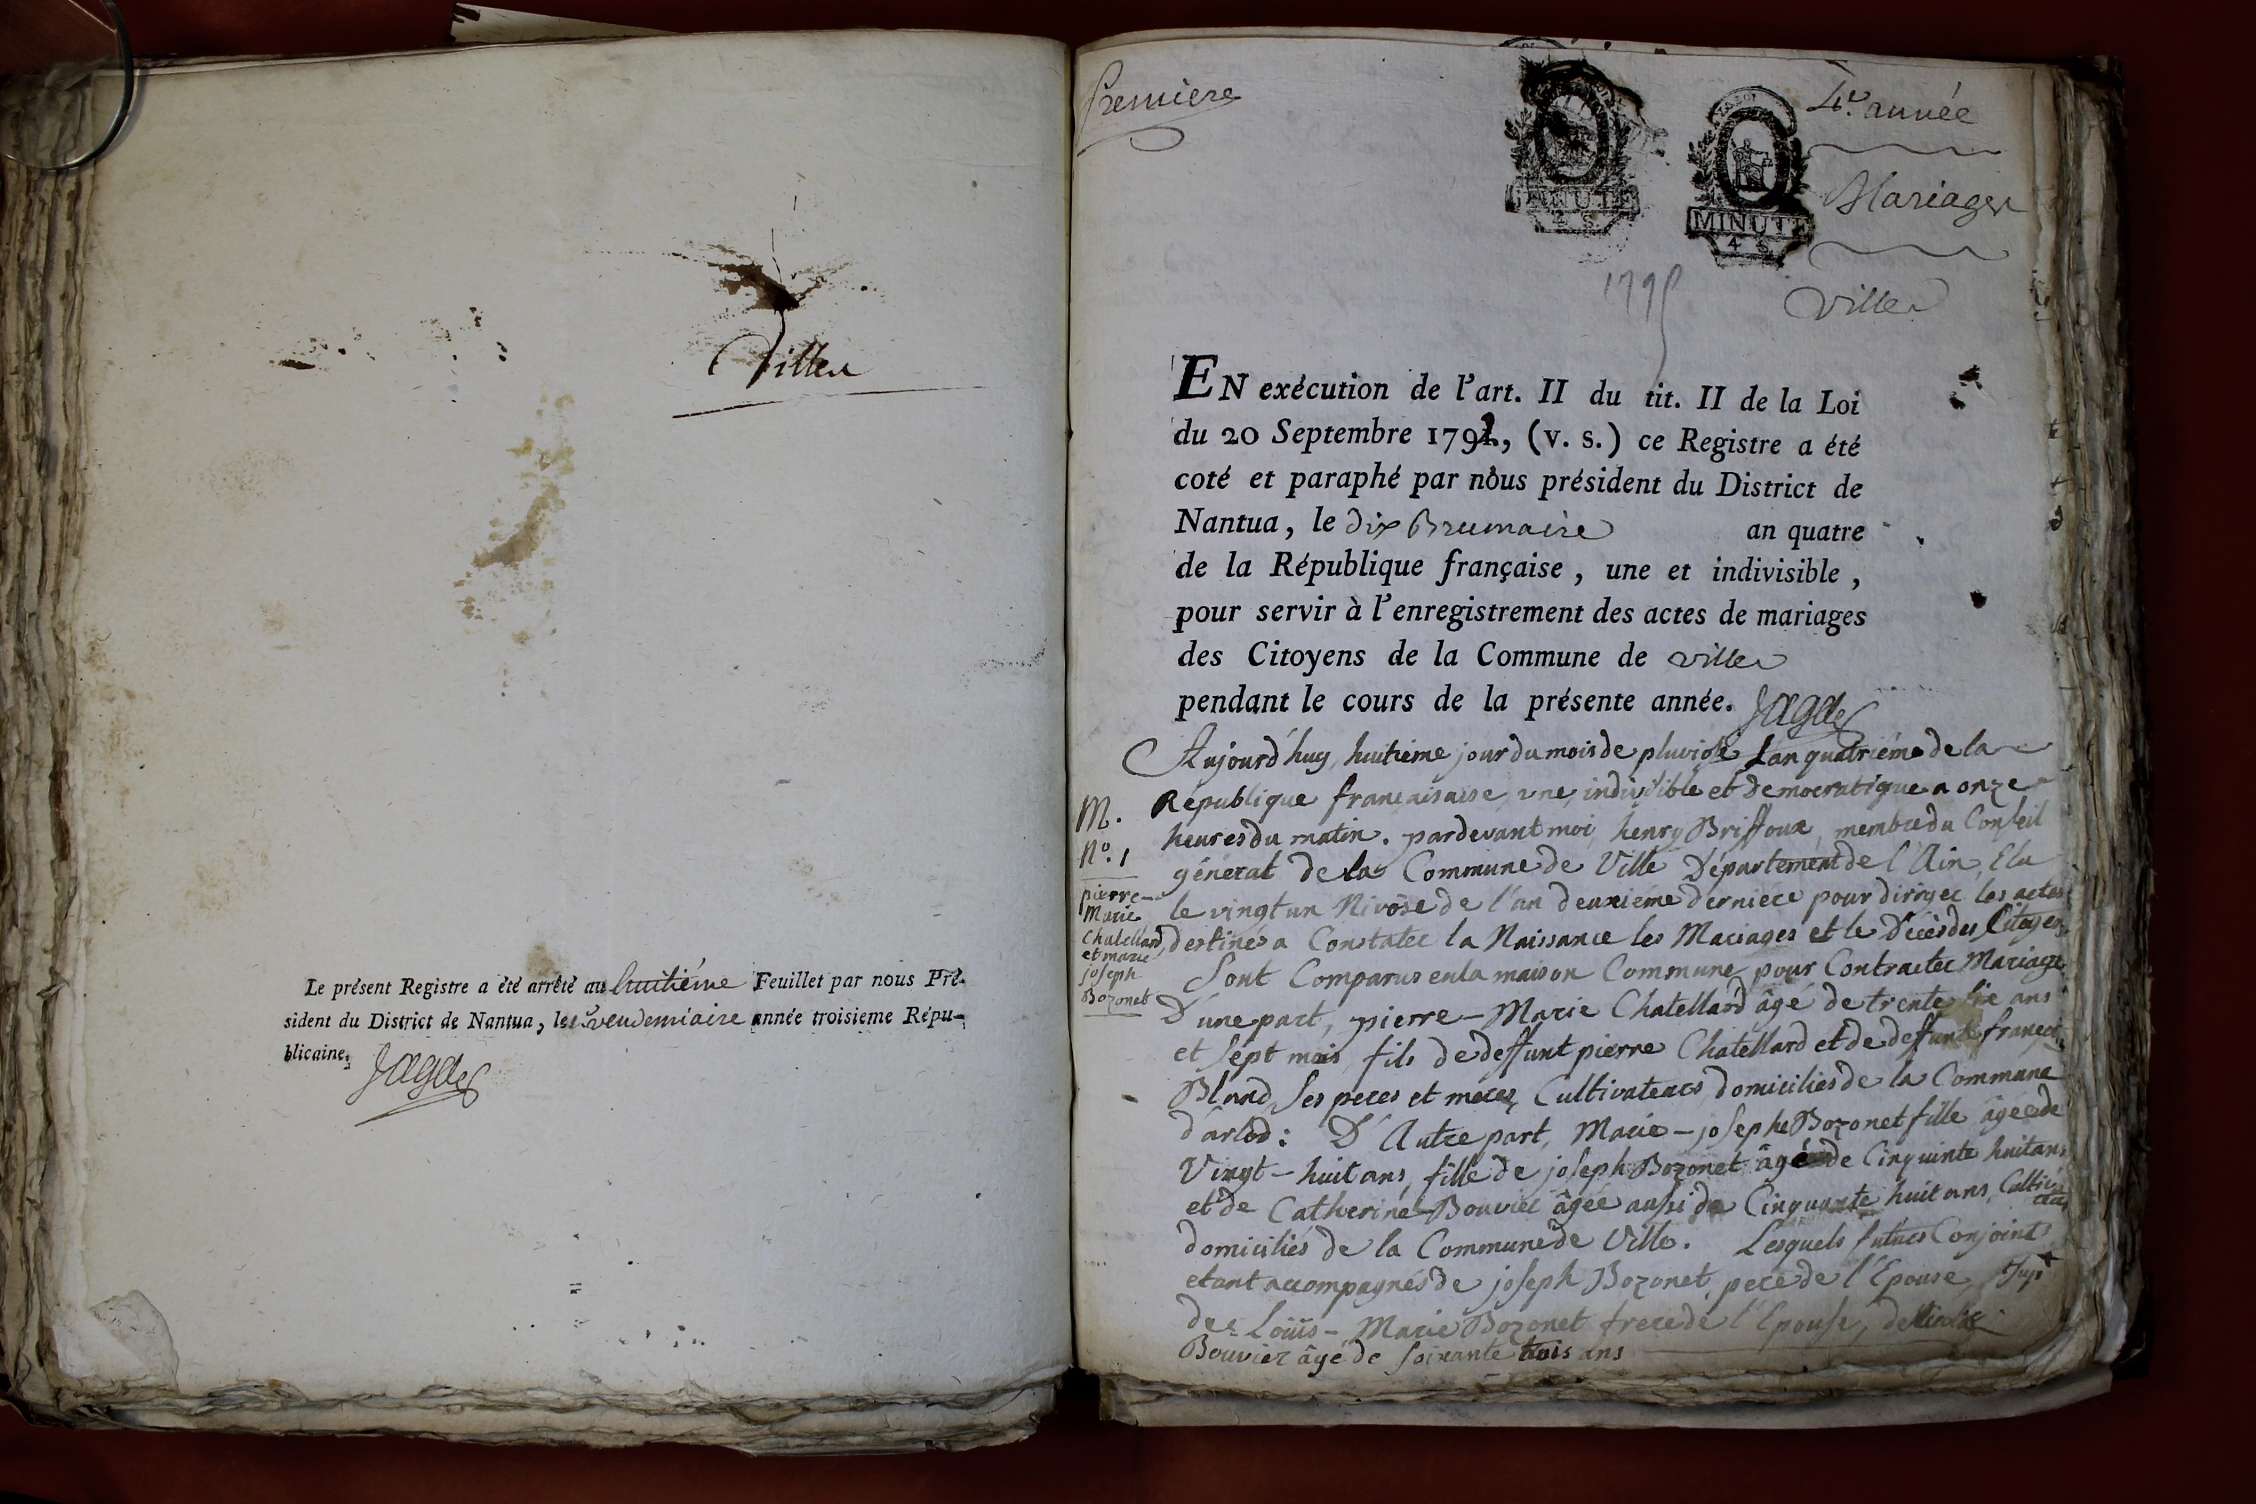 Ville
Le présent Registre a été arrêté au huitiéme Feuillet par nous Pré-
sident du District de Nantua, le vendemiaire année troisieme Répu-
blicaine.
Jagot
premiere
4e. année
Mariages
MINUTE
4 S.
MINUTE
4 S.
1795
Ville
EN exécution de l'art. II du tit. II de la Loi
du 20 Septembre 1792, (v. s.) ce Registre a été
coté et paraphé par nous président du District de
Nantua, le dix Brumaire an quatre
de la République française, une et indivisible,
pour servir à l'enregistrement des actes de mariages
des Citoyens de la Commune de ville
pendant le cours de la présente année.
Aujourd'huy, huitiéme jour du mois de pluviose Lan quatriéme de la
République francaisaise, une, indivisible et democratique a onze
heures du matin. pardevant moi, henry Briffoux, membre du Conseil
géneral de la Commune de Ville Département de l'Ain, Elu
le vingt un Nivôse de l'an deuxiéme derniére pour diriger les actes
destinés a Constater la Naissance les Mariages et le Décès des Citoyens
M.
No. 1
pierre-
Marie
Chatellard,
et marie
joseph
Bozonet
Sont Comparus en la maison Commune, pour Contracter Mariage
D'une part, pierre-Marie Chatellard âgé de trente six ans
et sept mois, fils de deffunt pierre Chatellard et de deffunte
Bland, ses peres et meres, Cultivateurs domiciliés de la Commune
d'arlod: D'Autre part, Marie-josephe Bozonet fille âgée de
Vingt-huit ans, fille de joseph Bozonet âgé de Cinquinte huit ans
et de Catherine Bouvier âgée aussi de Cinquante huit ans,
domiciliés de la Commune de Ville. Lesquels futurs Conjoints
etant accompagnés de joseph Bozonet, pere de l'Epouse,
de Loüis-Marie Bozonet frere de l'Epouse, de
Bouvier âgé de soixante trois ans